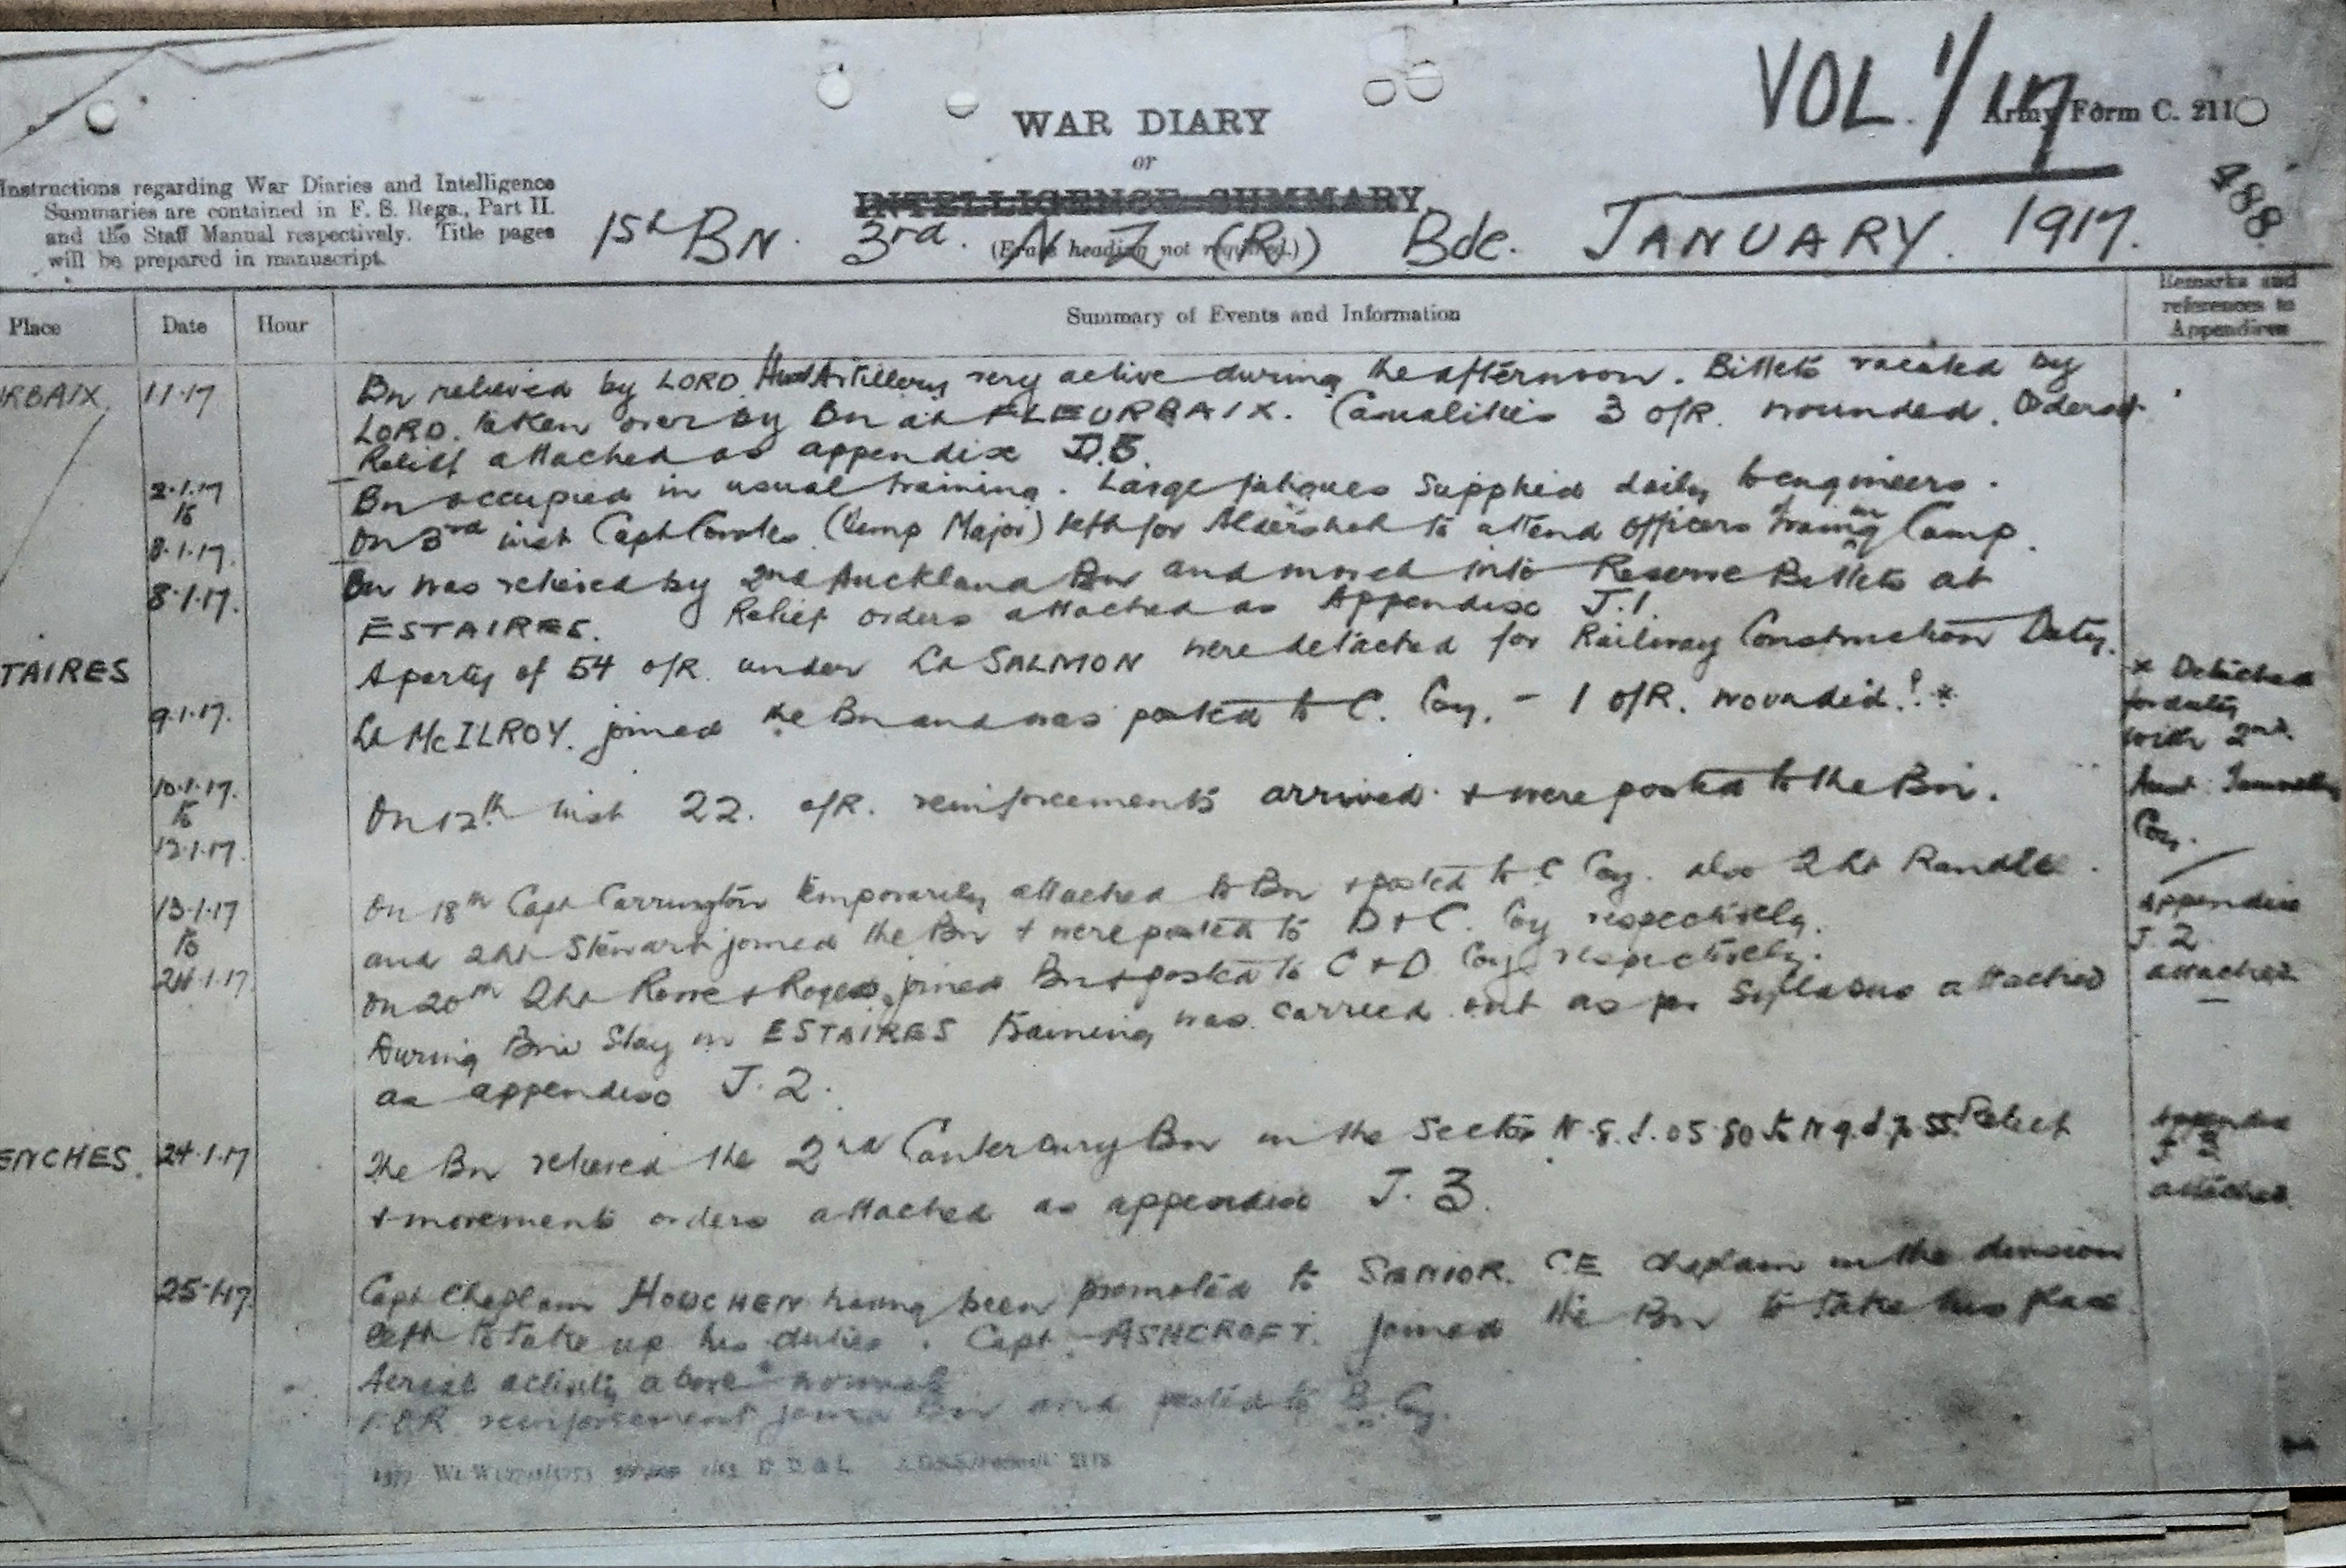 VOL. 1/17
WAR DIARY
Army Form C. 211
or
INTELLIGENCE SUMMARY.
488
Instructions regarding War Diaries and Intelligence
Summaries are contained in F. S. Regs., Part II.
and the Staff Manual respectively. Title pages
will be prepared in manuscript.
1st BN. 3rd. N Z (R) Bde. JANUARY. 1917.
(Erase heading not required.)
Place
Date
Hour
Summary of Events and Information
Remarks and
references to
Appendices
RBAIX 1 1·17 Bn relieved by LORD. Artillery very active during the afternoon. Billets vacated by
LORD. taken over by Bn at FLEURBAIX. Casualities 3 O/R. wounded. Orders
Relief attached as appendix D.5.
2·1·17 Bn occupied in usual training. Large fatigues supplied daily to engineers.
to On 3rd inst Capt (temp Major) left for Aldershot to attend officers training Camp.
8·1·17.
8·1·17. Bn was relieved by 2nd Auckland Bn and moved into Reserve Billets at
ESTAIRES. Relief orders attached as Appendix J.1.
TAIRES A party of 54 O/R. under Lt SALMON were detached for Railway Construction Duty.
9·1·17. Lt McILROY. joined the Bn and was posted to C. Coy. - 1 O/R. wounded! *
* Detached
for duty
with 2nd.
Aust Tunnelling
Coy.
10·1·17. On 12th inst 22. O/R. reinforcements arrived & were posted to the Bn.
to
12·1·17.
13·1·17 On 18th Capt Carrington temporarily attached to Bn & posted to C Coy. also 2 Lt Randle
to and 2 Lt Stewart joined the Bn & were posted to D & C. Coy respectively.
24·1·17 On 20th 2 Lt Rowe & Rogers joined Bn & posted to C & D Coys respectively.
During Bns Stay in ESTAIRES training was carried out as per Syllabus attached
as appendix J.2.
Appendix
J.2
attached
ENCHES. 24·1·17 The Bn relieved the 2nd Canterbury Bn in the Sector N.8.d.05.80 to N9.d.70.55. Relief
& movements orders attached as appendix J.3.
Appendix
J 3
attached.
25·1·17. Capt Chaplain HOUCHEN having been promoted to SENIOR. C.E chaplain in the division
left to take up his duties. Capt. ASHCROFT. joined the Bn to take his place.
Aerial activity above normal
1.O.R. reinforcement joined Bn and posted to B. Coy.